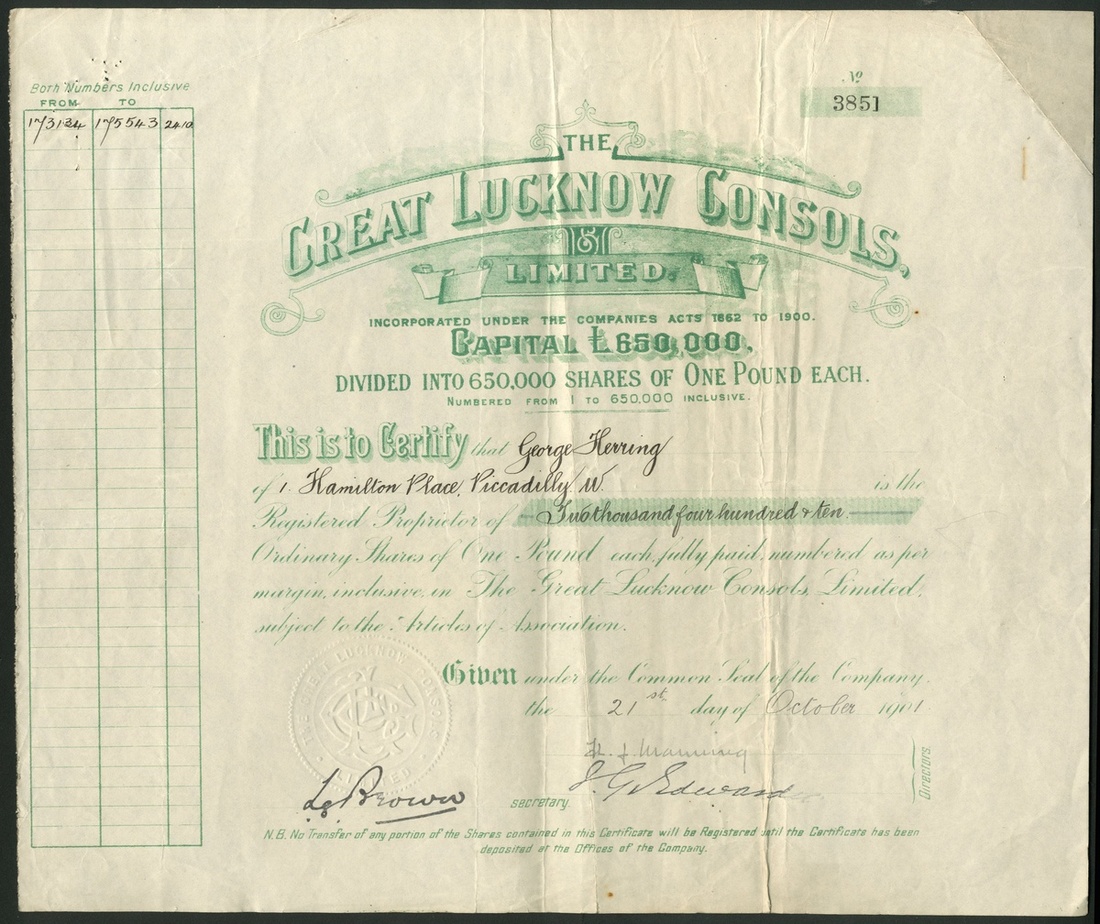 Both Numbers Inclusive
FROM TO
173134 175543 2410
No
3851
THE
GREAT LUCKNOW CONSOLS,
LIMITED.
INCORPORATED UNDER THE COMPANIES ACTS 1862 TO 1900.
CAPITAL £650,000,
DIVIDED INTO 650,000 SHARES OF ONE POUND EACH.
NUMBERED FROM 1 TO 650,000 INCLUSIVE.
This is to Certify that George Herring
of 1. Hamilton Place, Piccadilly W. is the
Registered Proprietor of Two thousand four hundred & ten
Ordinary Shares of One Pound each, fully paid, numbered as per
margin, inclusive, in The Great Lucknow Consols, Limited,
subject to the Articles of Association.
THE GREAT LUCKNOW CONSOLS
LIMITED
Given under the Common Seal of the Company,
the 21st day of October 1901
Manning
J. G. Edwards
Directors.
Brown
secretary.
N.B. No Transfer of any portion of the Shares contained in this Certificate will be Registered until the Certificate has been
deposited at the Offices of the Company.